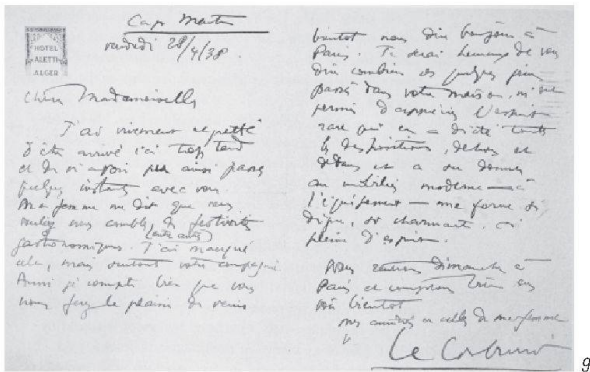 HOTEL
ALETTI
ALGER
Cap Martin
vendredi 28/4/38.
Chère Mademoiselle
J'ai vivement regretté
d'être arrivé ici trop tard
et de n'avoir pu ainsi passer
quelques instants avec vous.
Ma femme me dit que vous
nous combler de festivités
(entre autres)
gastronomiques. J'ai manqué
cela, mais surtout votre compagnie
Aussi je compte bien que vous
nous ferez le plaisir de venir
bientôt nous dire bonjour à
Paris. Je serai heureux de vous
dire combien ces quelques jours
passés dans votre maison, m'ont
permis d'apprécier l'esprit
rare qui en a dicté toutes
les dispositions, dehors et
dedans et a su donner
au mobilier moderne — à
l'équipement — une forme si
digne, si charmante, si
pleine d'esprit.
Nous rentrons dimanche à
Paris et comptons bien vous
voir bientôt
mes amitiés et celles de ma femme
Le Corbusier
9